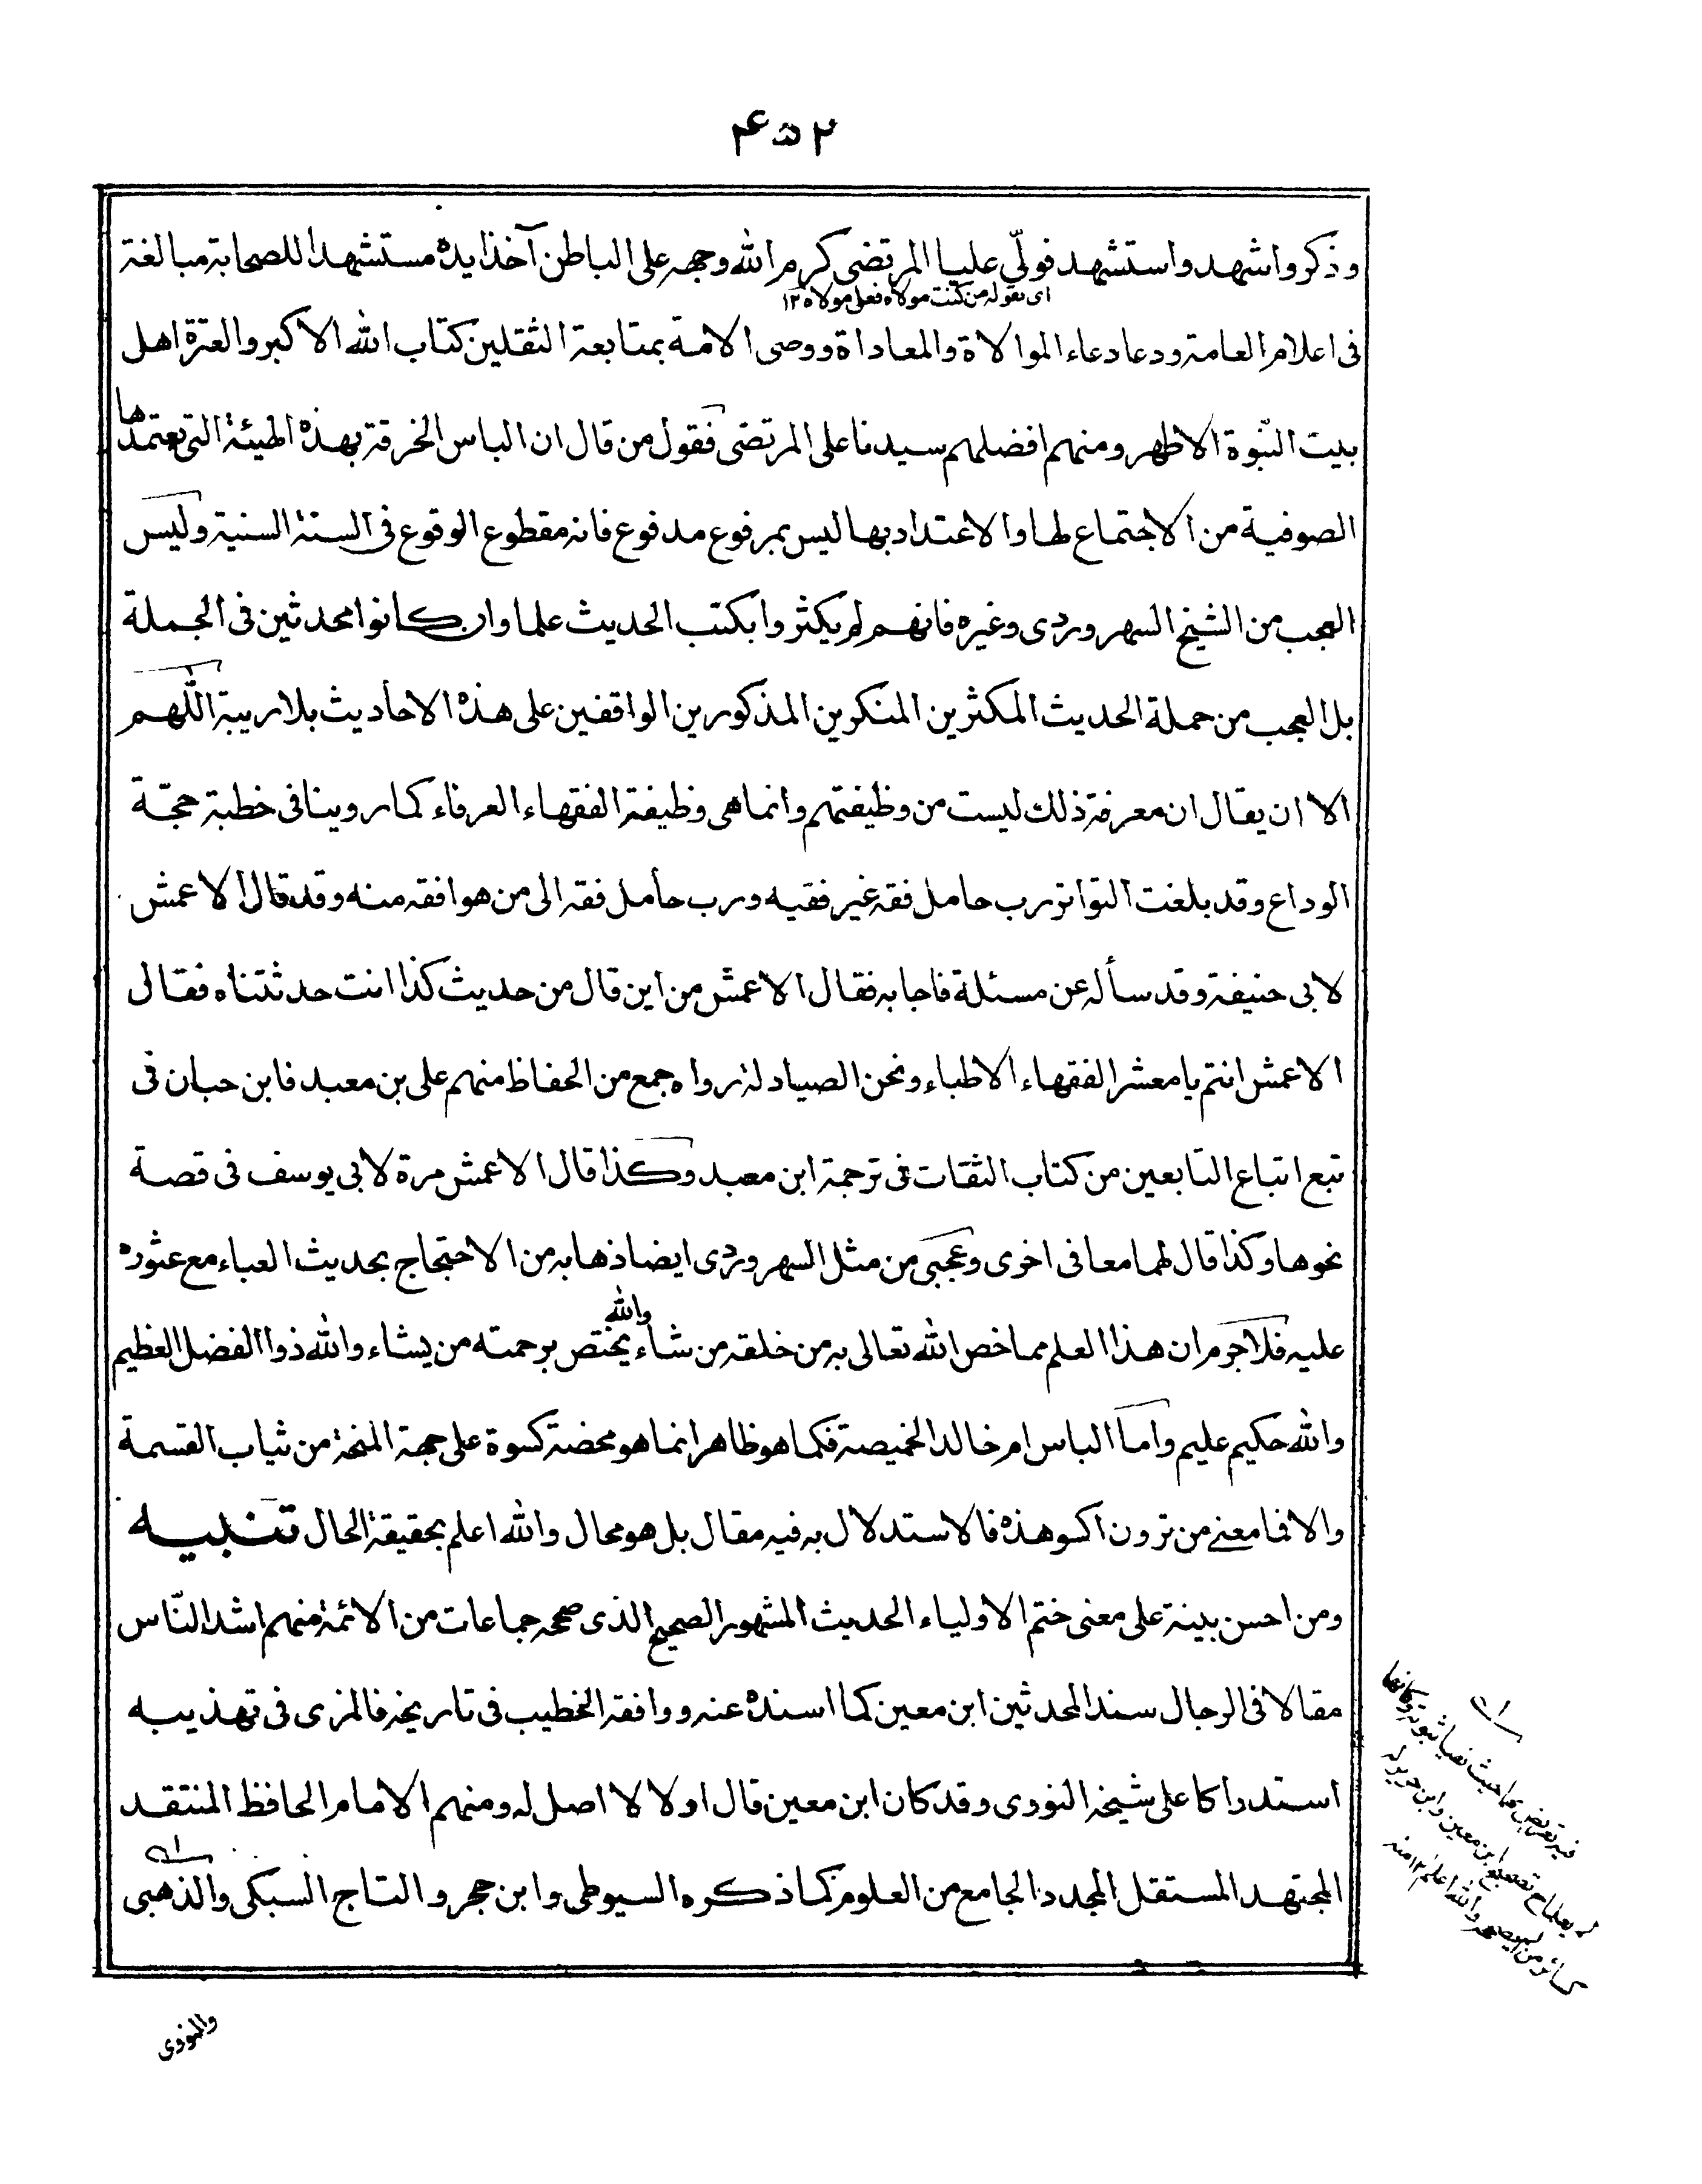 ۴۵۲
وذكر واشهد واستشهد فولّي عليا المرتضى كرم الله وجهه على الباطن آخذا يده مستشهدا للصحابة مبالغة
اى بقوله من كنت مولاه فعلى مولاه ۱۲
فى اعلام العامة ودعا دعاء الموالاة والمعاداة ووصى الامة بمتابعة الثقلين كتاب الله الاكبر والعترة اهل
بيت النّبوة الاطهر ومنهم افضلهم سيدنا على المرتضى فقول من قال ان الباس الخرقة بهذه الهيئة التى يعتمدها
الصوفية من الاجتماع لها والاعتداد بها ليس بمرفوع مدفوع فانه مقطوع الوقوع فى السنة السنية وليس
العجب من الشيخ السهروردى وغيره فانهم لم يكثروا بكتب الحديث علما وان كانوا محدثين فى الجملة
بل العجب من حملة الحديث المكثرين المنكرين المذكورين الواقفين على هذه الاحاديث بلا ريبة اللّهم
الا ان يقال ان معرفة ذلك ليست من وظيفتهم وانما هى وظيفة الفقهاء العرفاء كما روينا فى خطبة حجّة
الوداع وقد بلغت التواتر رب حامل فقه غير فقيه ورب حامل فقه الى من هو افقه منه وقد قال الاعمش
لابى حنيفة وقد سأله عن مسئلة فاجابه فقال الاعمش من اين قال من حديث كذا انت حدثتناه فقال
الاعمش انتم يا معشر الفقهاء الاطباء ونحن الصيادلة رواه جمع من الحفاظ منهم على بن معبد فابن حبان فى
تبع اتباع التابعين من كتاب الثقات فى ترجمة ابن معبد وكذا قال الاعمش مرة لابى يوسف فى قصة
نحوها وكذا قال لهما معا فى اخرى وعجبى من مثل السهروردى ايضا ذهابه من الاحتجاج بحديث العباء مع عثوره
عليه فلا جرم ان هذا العلم مما خص الله تعالى به من خلقه من شاء والله يختص برحمته من يشاء والله ذوا الفضل العظيم
والله حكيم عليم واما الباس ام خالد الخميصة فكما هو ظاهر انما هو محضة كسوة على جهة المنحة من ثياب القسمة
والا فما معنى من ترون اكسو هذه فالاستدلال به فيه مقال بل هو محال والله اعلم بحقيقة الحال تنبيه
ومن احسن بينة على معنى ختم الاولياء الحديث المشهور الصحيح الذى صححه جماعات من الائمة منهم اشد النّاس
مقالا فى الرجال سند المحدثين ابن معين كما اسنده عنه ووافقه الخطيب فى تاريخه فالمزى فى تهذيبه
استدراكا على شيخه النووى وقد كان ابن معين قال اولا لا اصل له ومنهم الامام الحافظ المنتقد
المجتهد المستقل المجدد الجامع من العلوم كما ذكره السيوطى وابن حجر والتاج السبكى والذهبى
والنووى